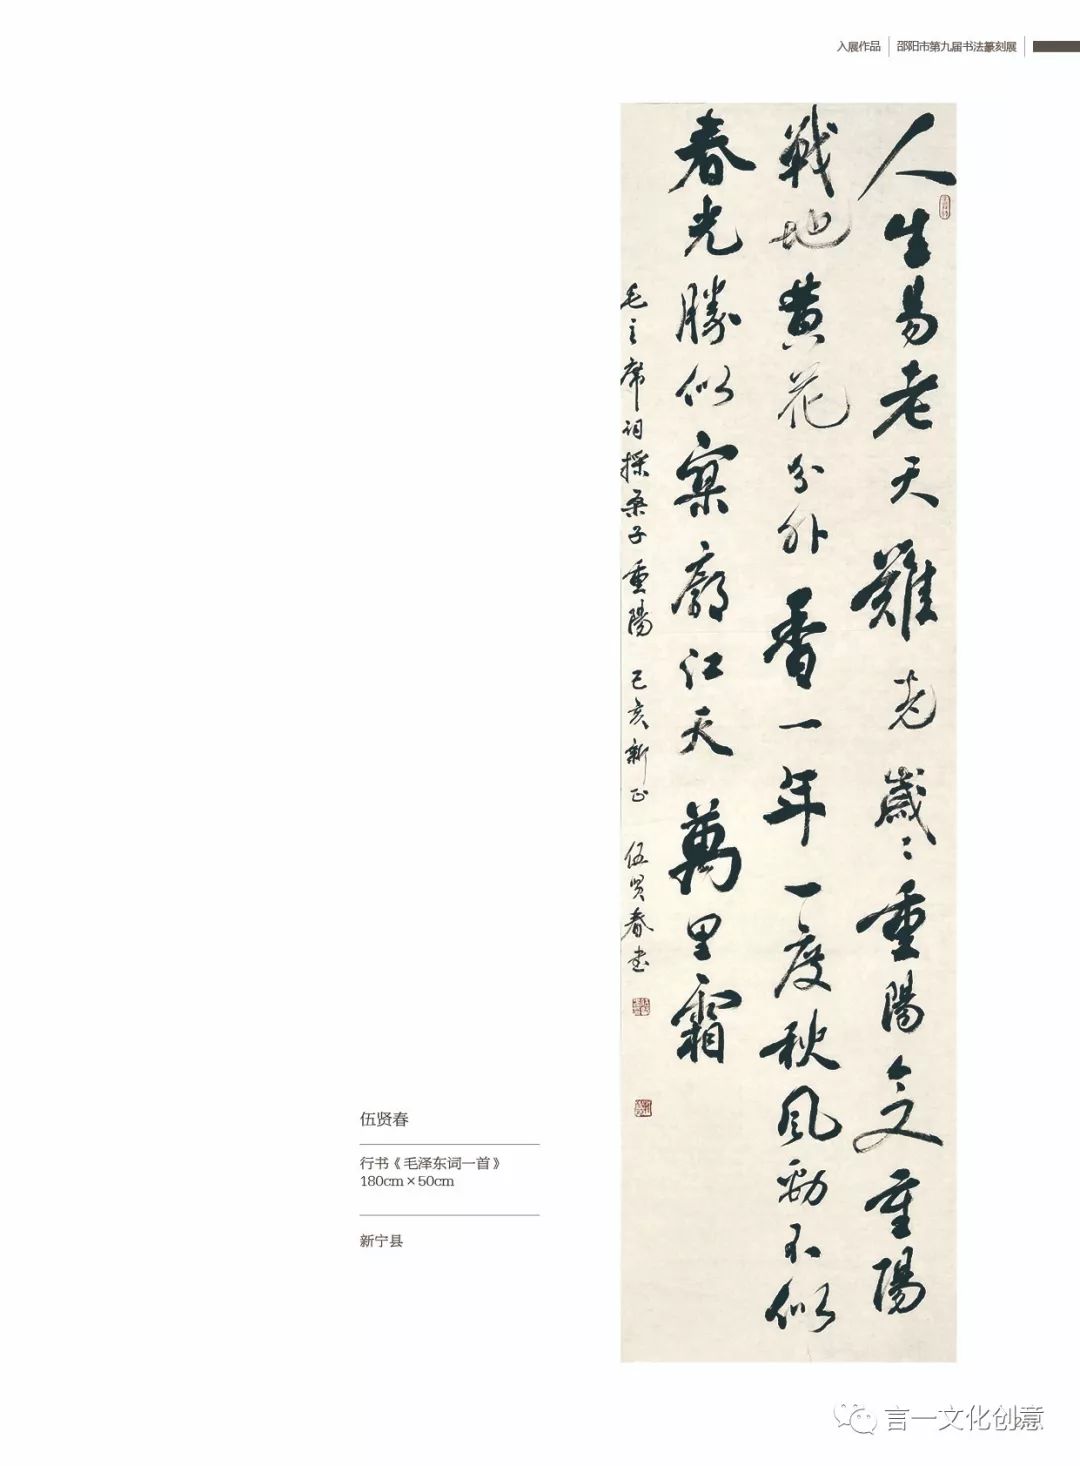 入展作品 邵阳市第九届书法篆刻展
人生易老天難老歲〻重陽今又重陽
戰地黄花分外香一年一度秋風勁不似
春光勝似寥廓江天萬里霜
毛主席词採桑子重陽 己亥新正 伍贤春书
伍贤春
行书《毛泽东词一首》
180cm×50cm
新宁县
言一文化创意